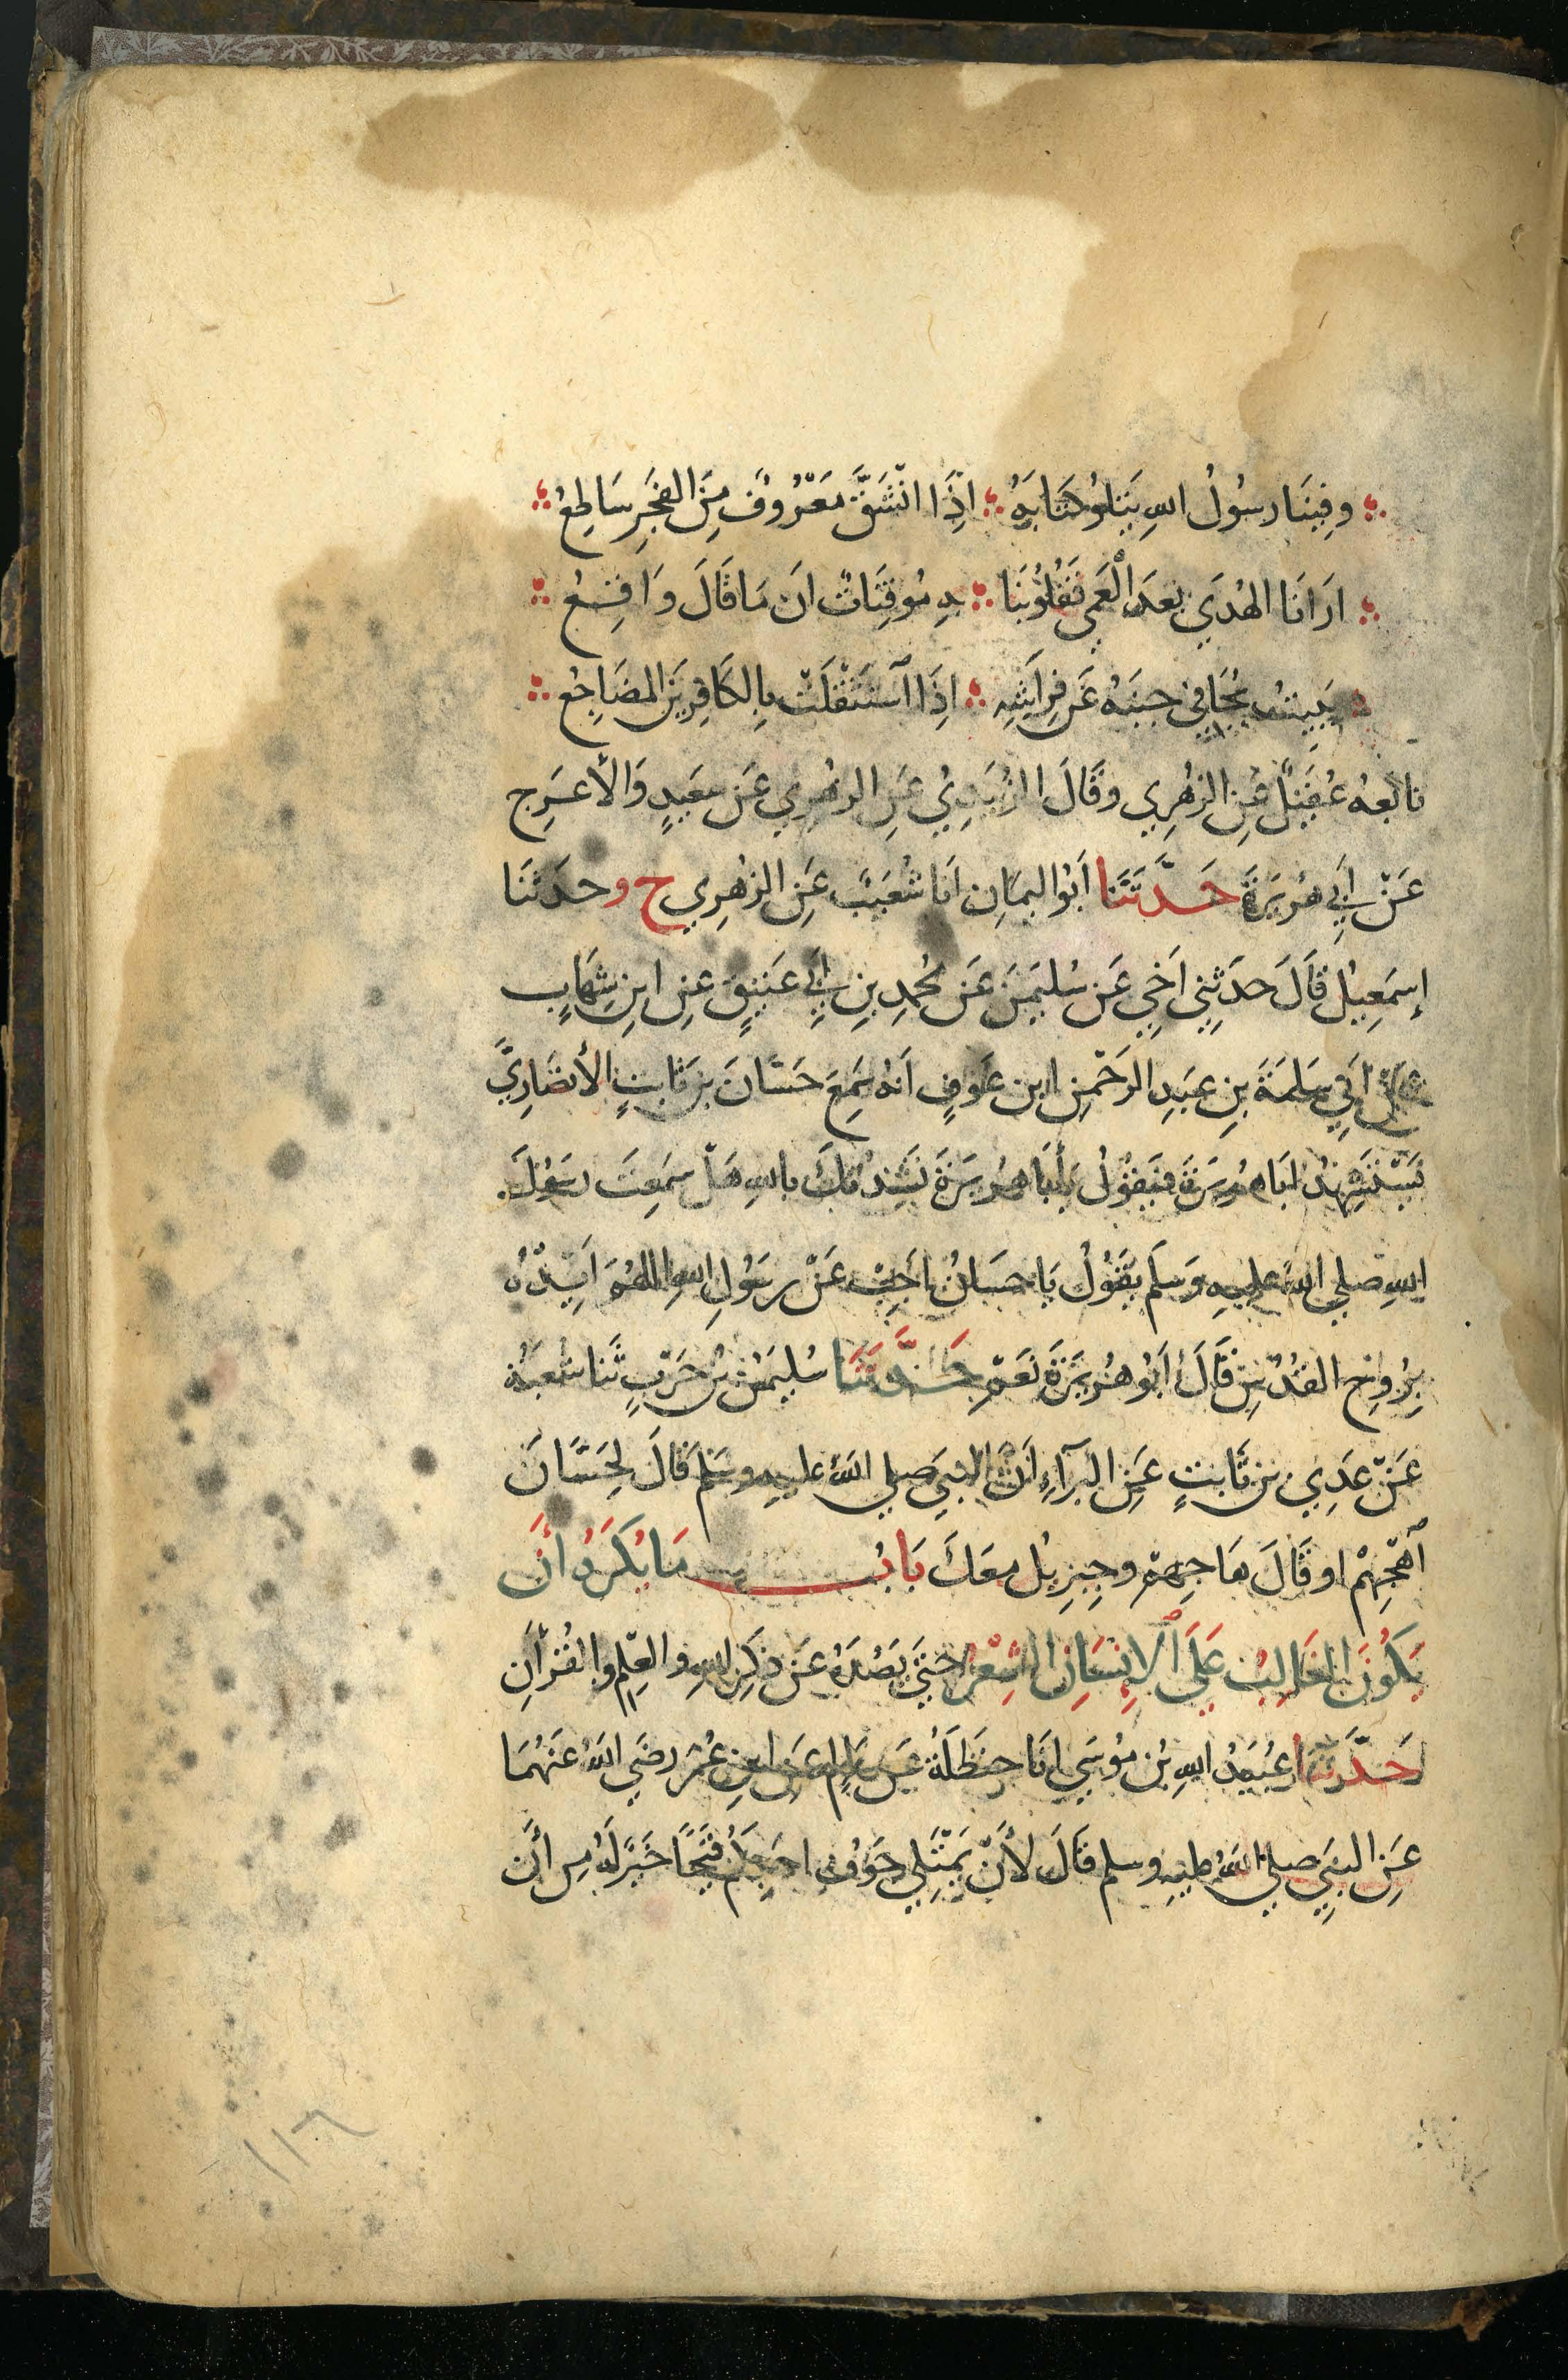 وفينا رسول الله يتلو كتابه ∴ اذا انشق معروف من الفجر ساطع
ارانا الهدى بعد العمى فقلوبنا ∴ به موقنات ان ما قال واقع
يبيت يجافي جنبه عن فراشه ∴ اذا استثقلت بالكافرين المضاجع
تابعه عقيل عن الزهري وقال الزبيدي عن الزهري عن سعيد والأعرج
عن أبي هريرة حدثنا أبو اليمان انا شعيب عن الزهري ح وحدثنا
إسمعيل قال حدثني اخي عن سليمن عن محمد بن أبي عتيق عن ابن شهاب
عن ابي سلمة بن عبد الرحمن ابن عوف انه سمع حسان بن ثابت الأنصاري
يستشهد ابا هريرة فيقول يا أبا هريرة نشدتك بالله هل سمعت رسول
الله صلى الله عليه وسلم يقول يا حسان اجب عن رسول الله اللهم ايده
بروح القدس قال ابو هريرة نعم حدثنا سليمن بن حرب ثنا شعبة
عن عدي بن ثابت عن البرآء ان النبي صلى الله عليه وسلم قال لحسان
اهجهم او قال هاجهم وجبريل معك باب ما يكره أن
يكون الغالب على الإنسان الشعر حتى يصده عن ذكر الله والعلم والقرآن
حدثنا عبيد الله بن موسى انا حنظلة عن سالم عن ابن عمر رضي الله عنهما
عن النبي صلى الله عليه وسلم قال لأن يمتلي جوف احدكم قيحا خير له من أن
١١٦